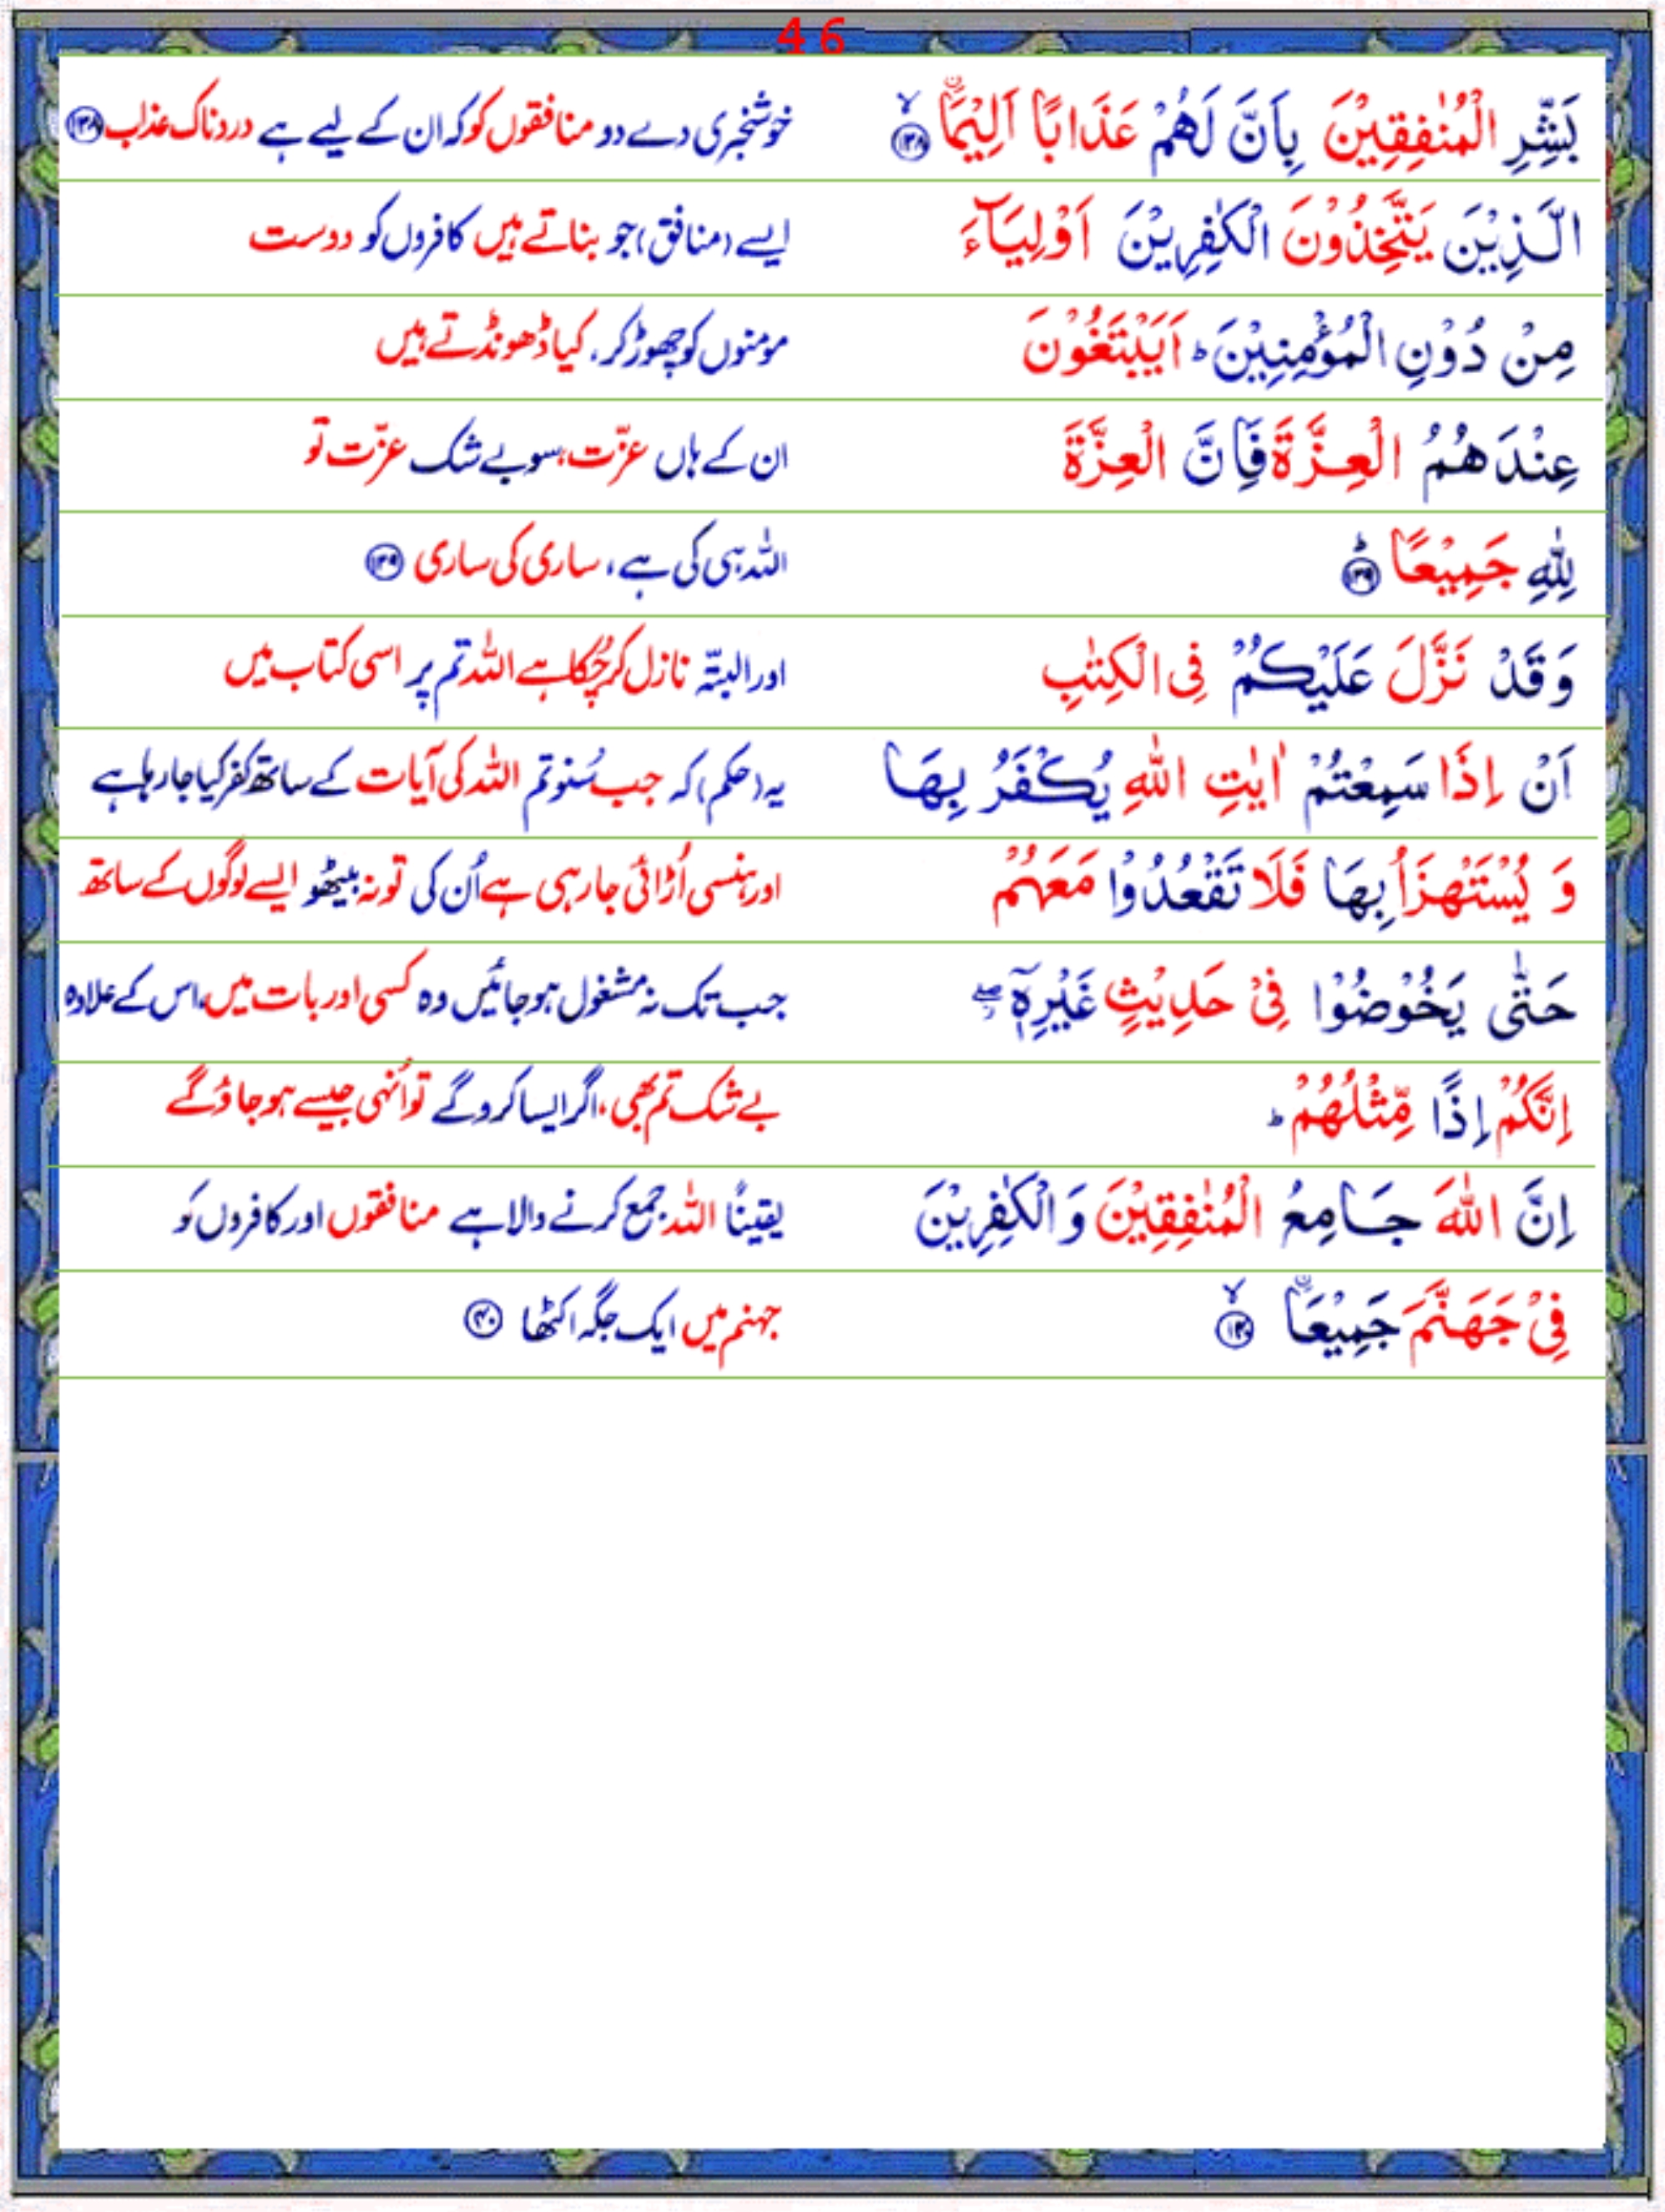 46
بَشِّرِ الْمُنٰفِقِيْنَ بِاَنَّ لَهُمْ عَذَابًا اَلِيْمًا ۙ﴿۱۳۸﴾ خوشخبری دے دو منافقوں کو کہ ان کے لیے ہے دردناک عذاب ﴿۱۳۸﴾
الَّذِيْنَ يَتَّخِذُوْنَ الْكٰفِرِيْنَ اَوْلِيَآءَ ایسے (منافق) جو بناتے ہیں کافروں کو دوست
مِنْ دُوْنِ الْمُؤْمِنِيْنَ ؕ اَيَبْتَغُوْنَ مومنوں کو چھوڑ کر، کیا ڈھونڈتے ہیں
عِنْدَهُمُ الْعِزَّةَ فَاِنَّ الْعِزَّةَ ان کے ہاں عزّت، سو بے شک عزّت تو
لِلّٰهِ جَمِيْعًا ؕ﴿۱۳۹﴾ اللہ ہی کی ہے، ساری کی ساری ﴿۱۳۹﴾
وَقَدْ نَزَّلَ عَلَيْكُمْ فِى الْكِتٰبِ اور البتّہ نازل کر چُکا ہے اللہ تم پر اسی کتاب میں
اَنْ اِذَا سَمِعْتُمْ اٰيٰتِ اللّٰهِ يُكْفَرُ بِهَا یہ (حکم) کہ جب سُنو تم اللہ کی آیات کے ساتھ کفر کیا جا رہا ہے
وَ يُسْتَهْزَاُ بِهَا فَلَا تَقْعُدُوْا مَعَهُمْ اور ہنسی اُڑائی جا رہی ہے اُن کی تو نہ بیٹھو ایسے لوگوں کے ساتھ
حَتّٰى يَخُوْضُوْا فِىْ حَدِيْثٍ غَيْرِهٖۤ ۖ جب تک نہ مشغول ہو جائیں وہ کسی اور بات میں، اس کے علاوہ
اِنَّكُمْ اِذًا مِّثْلُهُمْ ؕ بے شک تم بھی، اگر ایسا کرو گے تو اُنہی جیسے ہو جاؤ گے
اِنَّ اللّٰهَ جَامِعُ الْمُنٰفِقِيْنَ وَالْكٰفِرِيْنَ یقیناً اللہ جمع کرنے والا ہے منافقوں اور کافروں کو
فِىْ جَهَنَّمَ جَمِيْعَاۨ ۙ﴿۱۴۰﴾ جہنم میں ایک جگہ اکٹھا ﴿۱۴۰﴾